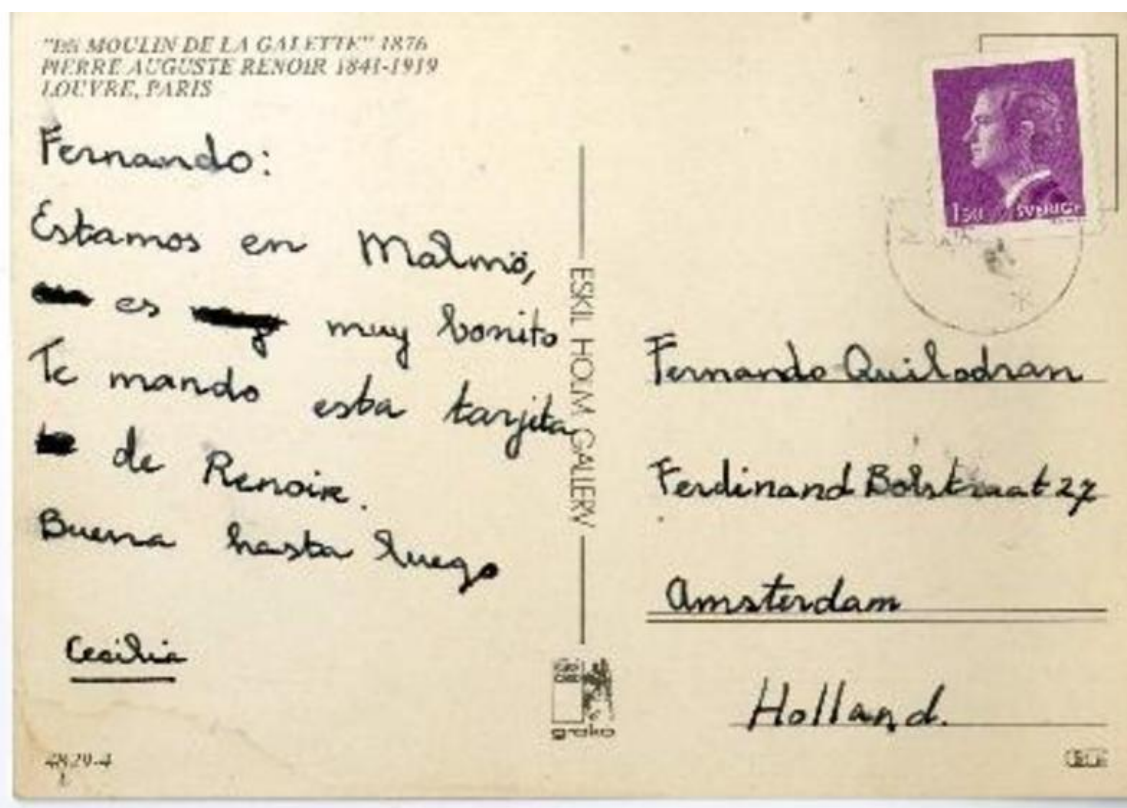 MOULIN DE LA GALETTE" 1876
PIERRE AUGUSTE RENOIR 1841-1919
LOUVRE, PARIS
Fernando:
Estamos en Malmö,
es muy bonito
Te mando esta tarjita
de Renoir.
Buena hasta luego
Cecilia
4829-4
ESKIL HOLM GALLERY
grako
SVERIGE
Fernando Quilodran
Ferdinand Bolstraat 27
Amsterdam
Holland.